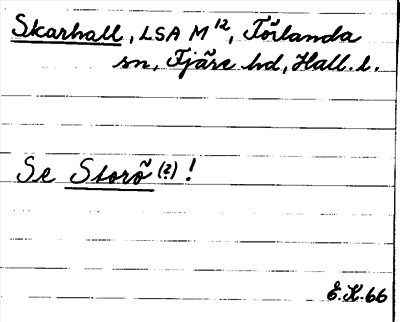 Skarhall, LSA M 12, Förlanda
sn, Fjäre hd, Hall. l.
Se Storö (?) !
E.K. 66